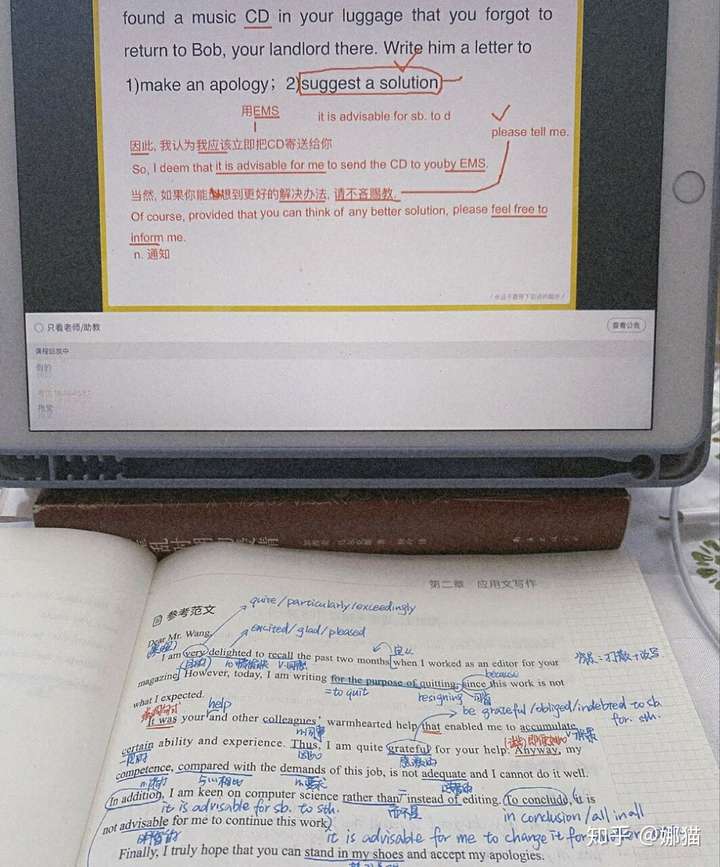 found a music CD in your luggage that you forgot to
return to Bob, your landlord there. Write him a letter to
1)make an apology; 2)suggest a solution
用EMS
it is advisable for sb. to d
please tell me.
因此, 我认为我应该立即把CD寄送给你
So, I deem that it is advisable for me to send the CD to youby EMS.
当然, 如果你能想到更好的解决办法, 请不吝赐教.
Of course, provided that you can think of any better solution, please feel free to
inform me.
n. 通知
只看老师/助教
查看公告
课程回放中
第二章 应用文写作
参考范文
quite/particularly/exceedingly
Dear Mr. Wang,
excited/glad/pleased
I am very delighted to recall the past two months when I worked as an editor for your
magazine. However, today, I am writing for the purpose of quitting, since this work is not
because
=to quit
resigning
what I expected.
be grateful/obliged/indebted to sb.
for. sth.
help
It was your and other colleagues' warmhearted help that enabled me to accumulate
certain ability and experience. Thus, I am quite grateful for your help. Anyway, my
competence, compared with the demands of this job, is not adequate and I cannot do it well.
In addition, I am keen on computer science rather than instead of editing. To conclude, it is
it is advisable for sb. to sth.
而不是
in conclusion/all in all
not advisable for me to continue this work.
it is advisable for me to change it for
Finally, I truly hope that you can stand in my shoes and accept my apologies.
知乎 @娜猫